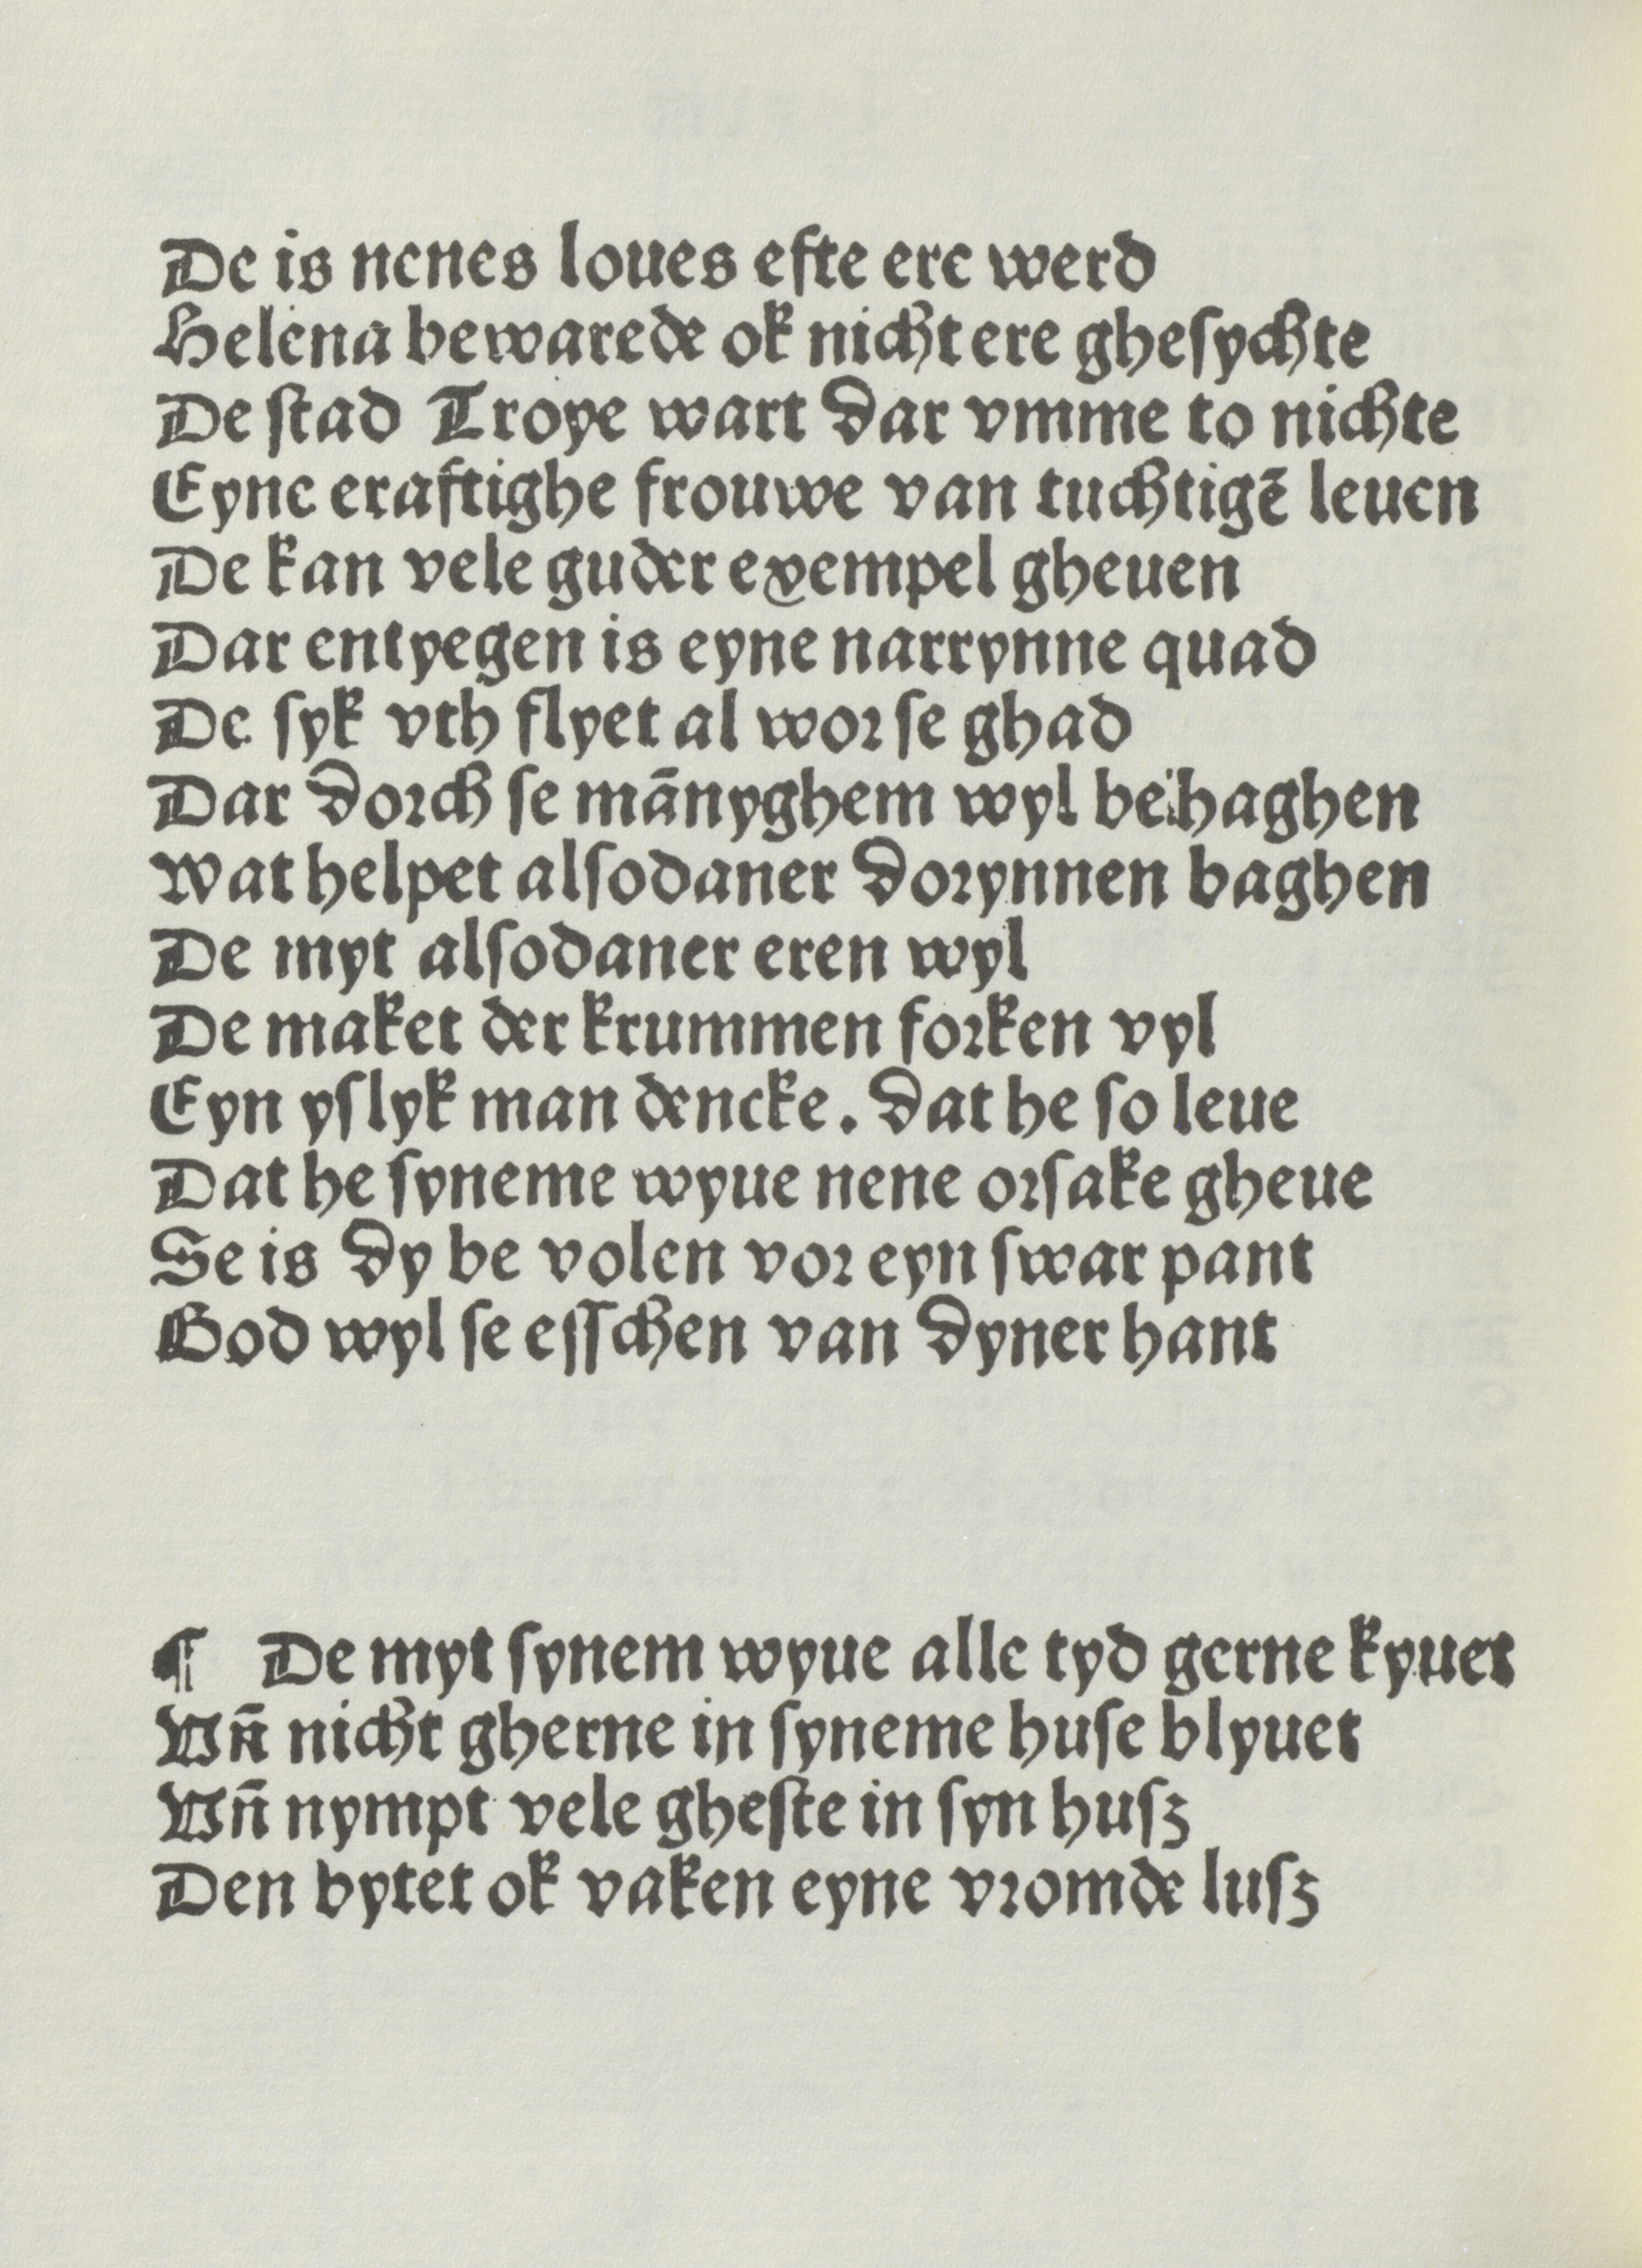 De is nenes loues efte ere werd
Helena bewarede ok nicht ere gheſychte
De ſtad Troye wart dar vmme to nichte
Eyne eraftighe frouwe van tuchtigē leuen
De kan vele guder exempel gheuen
Dar entyegen is eyne narrynne quad
De ſyk vth flyet al woꝛ ſe ghad
Dar doꝛch ſe mānyghem wyl behaghen
Wat helpet alſodaner doꝛynnen baghen
De myt alſodaner eren wyl
De maket der krummen foꝛken vyl
Eyn yſlyk man dencke. dat he ſo leue
Dat he ſyneme wyue nene oꝛſake gheue
Se is dy be volen voꝛ eyn ſwar pant
God wyl ſe eſſchen van dyner hant
¶ De myt ſynem wyue alle tyd gerne kyuet
Vn̄ nicht gherne in ſyneme huſe blyuet
Vn̄ nympt vele gheſte in ſyn huſz
Den bytet ok vaken eyne vꝛomde luſz